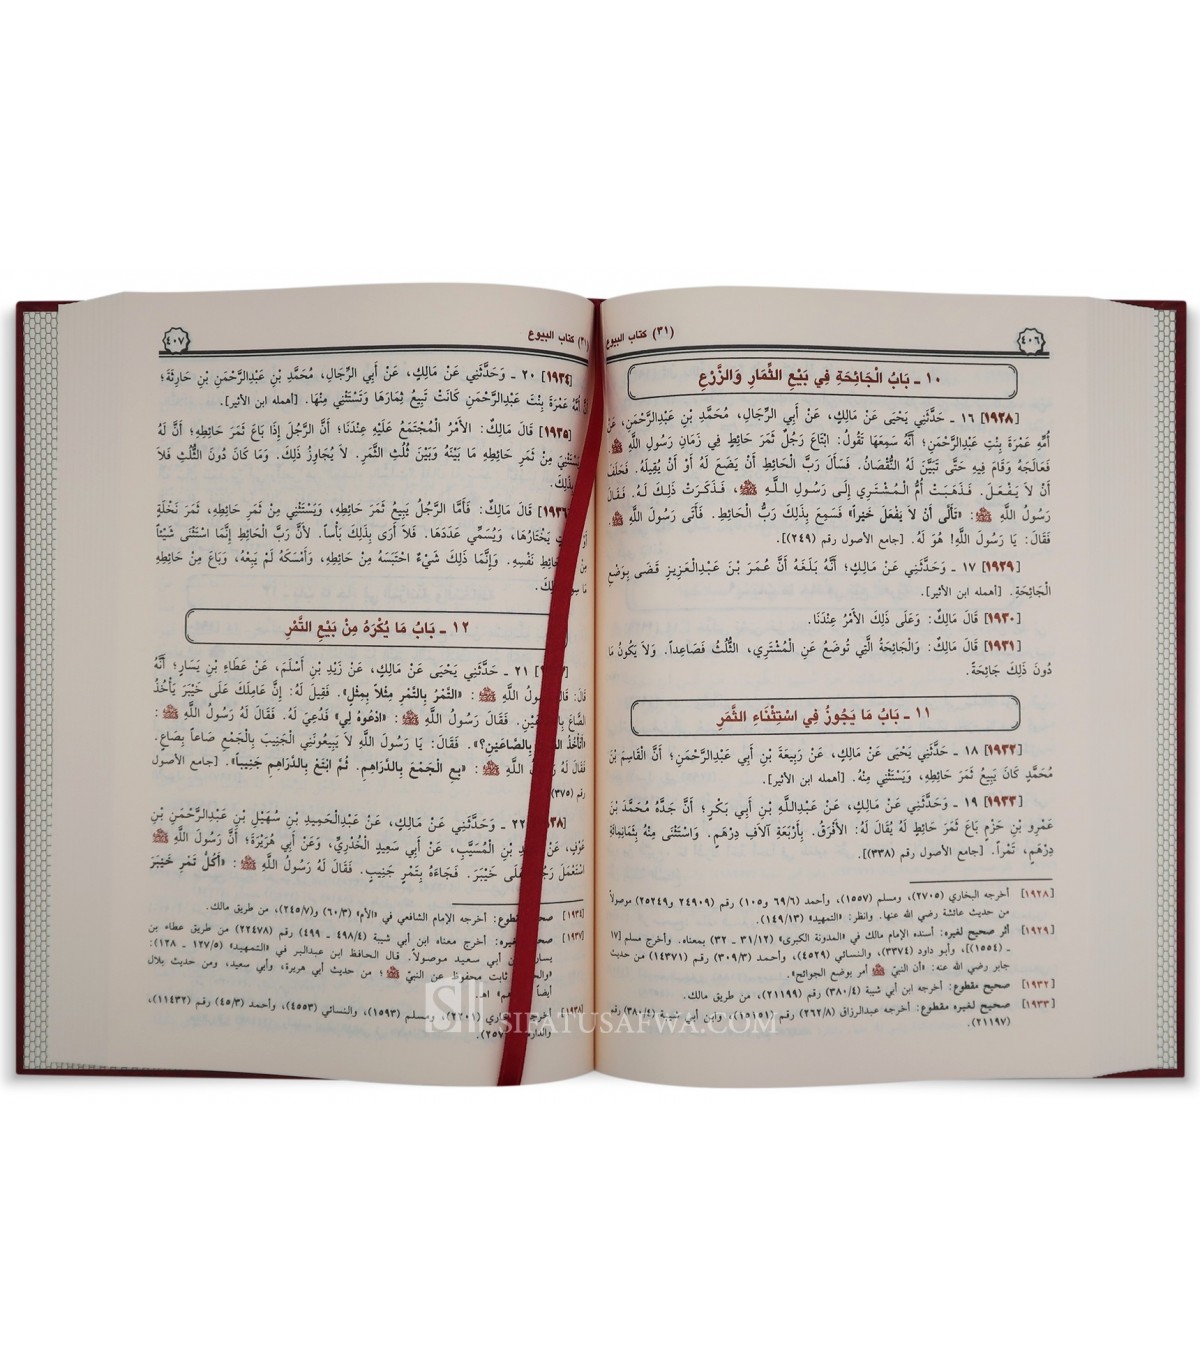 ٤٠٦
(٣١) كتاب البيوع
١٠ ـ بَابُ الْجَائِحَةِ فِي بَيْعِ الثِّمَارِ وَالزَّرْعِ
[١٩٢٨] ١٦ ـ حَدَّثَنِي يَحْيَى عَنْ مَالِكٍ، عَنْ أَبِي الرِّجَالِ، مُحَمَّدِ بْنِ عَبْدِالرَّحْمَنِ، عَنْ
أُمِّهِ عَمْرَةَ بِنْتِ عَبْدِالرَّحْمَنِ؛ أَنَّهُ سَمِعَهَا تَقُولُ: ابْتَاعَ رَجُلٌ ثَمَرَ حَائِطٍ فِي زَمَانِ رَسُولِ اللَّهِ ﷺ.
فَعَالَجَهُ وَقَامَ فِيهِ حَتَّى تَبَيَّنَ لَهُ النُّقْصَانُ. فَسَأَلَ رَبَّ الْحَائِطِ أَنْ يَضَعَ لَهُ أَوْ أَنْ يُقِيلَهُ. فَحَلَفَ
أَنْ لاَ يَفْعَلَ. فَذَهَبَتْ أُمُّ الْمُشْتَرِي إِلَى رَسُولِ اللَّهِ ﷺ، فَذَكَرَتْ ذَلِكَ لَهُ. فَقَالَ
رَسُولُ اللَّهِ ﷺ: «تَأَلَّى أَنْ لاَ يَفْعَلَ خَيْراً» فَسَمِعَ بِذَلِكَ رَبُّ الْحَائِطِ. فَأَتَى رَسُولَ اللَّهِ ﷺ.
فَقَالَ: يَا رَسُولَ اللَّهِ! هُوَ لَهُ. [جامع الأصول رقم (٢٤٩)].
[١٩٢٩] ١٧ ـ وَحَدَّثَنِي عَنْ مَالِكٍ؛ أَنَّهُ بَلَغَهُ أَنَّ عُمَرَ بْنَ عَبْدِالْعَزِيزِ قَضَى بِوَضْعِ
الْجَائِحَةِ. [أهمله ابن الأثير].
[١٩٣٠] قَالَ مَالِكٌ: وَعَلَى ذَلِكَ الأَمْرُ عِنْدَنَا.
[١٩٣١] قَالَ مَالِكٌ: وَالْجَائِحَةُ الَّتِي تُوضَعُ عَنِ الْمُشْتَرِي، الثُّلُثُ فَصَاعِداً. وَلاَ يَكُونُ مَا
دُونَ ذَلِكَ جَائِحَةً.
١١ ـ بَابُ مَا يَجُوزُ فِي اسْتِثْنَاءِ الثَّمَرِ
[١٩٣٢] ١٨ ـ حَدَّثَنِي يَحْيَى عَنْ مَالِكٍ، عَنْ رَبِيعَةَ بْنِ أَبِي عَبْدِالرَّحْمَنِ؛ أَنَّ الْقَاسِمَ بْنَ
مُحَمَّدٍ كَانَ يَبِيعُ ثَمَرَ حَائِطِهِ، وَيَسْتَثْنِي مِنْهُ. [أهمله ابن الأثير].
[١٩٣٣] ١٩ ـ وَحَدَّثَنِي عَنْ مَالِكٍ، عَنْ عَبْدِاللَّهِ بْنِ أَبِي بَكْرٍ؛ أَنَّ جَدَّهُ مُحَمَّدَ بْنَ
عَمْرِو بْنِ حَزْمٍ بَاعَ ثَمَرَ حَائِطٍ لَهُ يُقَالُ لَهُ: الأَفْرَقُ. بِأَرْبَعَةِ آلاَفِ دِرْهَمٍ. وَاسْتَثْنَى مِنْهُ بِثَمَانِمِائَةِ
دِرْهَمٍ، تَمْراً. [جامع الأصول رقم (٣٣٨)].
[١٩٢٨] أخرجه البخاري (٢٧٠٥)، ومسلم (١٥٥٧)، وأحمد (٦٩/٦ و١٠٥) رقم (٢٤٩٠٩ و٢٥٢٤٩) موصولاً
من حديث عائشة رضي الله عنها. وانظر: «التمهيد» (١٤٩/١٣).
[١٩٢٩] أثر صحيح لغيره: أسنده الإمام مالك في «المدونة الكبرى» (٣١/١٢ ـ ٣٢) بمعناه. وأخرج مسلم [١٧
ـ (١٥٥٤)]، وأبو داود (٣٣٧٤)، والنسائي (٤٥٢٩)، وأحمد (٣٠٩/٣) رقم (١٤٣٧١) من حديث
جابر رضي الله عنه: «أن النبيّ ﷺ أمر بوضع الجوائح».
[١٩٣٢] صحيح مقطوع: أخرجه ابن أبي شيبة (٣٨٠/٤) رقم (٢١١٩٩)، من طريق مالك.
[١٩٣٣] صحيح لغيره مقطوع: أخرجه عبدالرزاق (٢٦٢/٨) رقم (١٥١٥١)، وابن أبي شيبة (٣٨٠/٤) رقم
(٢١١٩٧).
(٣١) كتاب البيوع
٤٠٧
[١٩٣٤] ٢٠ ـ وَحَدَّثَنِي عَنْ مَالِكٍ، عَنْ أَبِي الرِّجَالِ، مُحَمَّدِ بْنِ عَبْدِالرَّحْمَنِ بْنِ حَارِثَةَ؛
أَنَّ أُمَّهُ عَمْرَةَ بِنْتَ عَبْدِالرَّحْمَنِ كَانَتْ تَبِيعُ ثِمَارَهَا وَتَسْتَثْنِي مِنْهَا. [أهمله ابن الأثير].
[١٩٣٥] قَالَ مَالِكٌ: الأَمْرُ الْمُجْتَمَعُ عَلَيْهِ عِنْدَنَا؛ أَنَّ الرَّجُلَ إِذَا بَاعَ ثَمَرَ حَائِطِهِ؛ أَنَّ لَهُ
يَسْتَثْنِيَ مِنْ ثَمَرِ حَائِطِهِ مَا بَيْنَهُ وَبَيْنَ ثُلُثِ الثَّمَرِ. لاَ يُجَاوِزُ ذَلِكَ. وَمَا كَانَ دُونَ الثُّلُثِ فَلاَ
بِذَلِكَ.
[١٩٣٦] قَالَ مَالِكٌ: فَأَمَّا الرَّجُلُ يَبِيعُ ثَمَرَ حَائِطِهِ، وَيَسْتَثْنِي مِنْ ثَمَرِ حَائِطِهِ، ثَمَرَ نَخْلَةٍ
أَوْ يَخْتَارُهَا، وَيُسَمِّي عَدَدَهَا. فَلاَ أَرَى بِذَلِكَ بَأْساً. لأَنَّ رَبَّ الْحَائِطِ إِنَّمَا اسْتَثْنَى شَيْئاً
مِنْ نَفْسِهِ. وَإِنَّمَا ذَلِكَ شَيْءٌ احْتَبَسَهُ مِنْ حَائِطِهِ، وَأَمْسَكَهُ لَمْ يَبِعْهُ، وَبَاعَ مِنْ حَائِطِهِ
١٢ ـ بَابُ مَا يُكْرَهُ مِنْ بَيْعِ التَّمْرِ
٢١ ـ حَدَّثَنِي يَحْيَى عَنْ مَالِكٍ، عَنْ زَيْدِ بْنِ أَسْلَمَ، عَنْ عَطَاءِ بْنِ يَسَارٍ؛ أَنَّهُ
اللَّهِ ﷺ: «التَّمْرُ بِالتَّمْرِ مِثْلاً بِمِثْلٍ». فَقِيلَ لَهُ: إِنَّ عَامِلَكَ عَلَى خَيْبَرَ يَأْخُذُ
الصَّاعَ فَقَالَ رَسُولُ اللَّهِ ﷺ: «ادْعُوهُ لِي» فَدُعِيَ لَهُ. فَقَالَ لَهُ رَسُولُ اللَّهِ ﷺ:
«أَتَأْخُذُ بِالصَّاعَيْنِ؟». فَقَالَ: يَا رَسُولَ اللَّهِ لاَ يَبِيعُونَنِي الْجَنِيبَ بِالْجَمْعِ صَاعاً بِصَاعٍ.
فَقَالَ لَهُ اللَّهِ ﷺ: «بِعِ الْجَمْعَ بِالدَّرَاهِمِ. ثُمَّ ابْتَعْ بِالدَّرَاهِمِ جَنِيباً». [جامع الأصول
رقم (٣٧٥)
٢٢ ـ وَحَدَّثَنِي عَنْ مَالِكٍ، عَنْ عَبْدِالْحَمِيدِ بْنِ سُهَيْلِ بْنِ عَبْدِالرَّحْمَنِ بْنِ
عَوْفٍ، عَنْ بْنِ الْمُسَيَّبِ، عَنْ أَبِي سَعِيدٍ الْخُدْرِيِّ، وَعَنْ أَبِي هُرَيْرَةَ؛ أَنَّ رَسُولَ اللَّهِ ﷺ
اسْتَعْمَلَ عَلَى خَيْبَرَ. فَجَاءَهُ بِتَمْرٍ جَنِيبٍ. فَقَالَ لَهُ رَسُولُ اللَّهِ ﷺ: «أَكُلُّ تَمْرِ خَيْبَرَ
[١٩٣٤] صحيح مقطوع: أخرجه الإمام الشافعي في «الأم» (٦٠/٣) و(٢٤٥/٧)، من طريق مالك.
[١٩٣٧] صحيح لغيره: أخرج معناه ابن أبي شيبة (٤٩٨/٤ ـ ٤٩٩) رقم (٢٢٤٧٨) من طريق عطاء بن
أبي سعيد موصولاً. قال الحافظ ابن عبدالبر في «التمهيد» (١٢٧/٥ ـ ١٢٨):
ثابت محفوظ عن النبيّ ﷺ؛ من حديث أبي هريرة، وأبي سعيد، ومن حديث بلال
أيضاً
[١٩٣٨] (٢٢٠١)، ومسلم (١٥٩٣)، والنسائي (٤٥٥٣)، وأحمد (٤٥/٣) رقم (١١٤٣٢)،
SIFATUSAFWA.COM